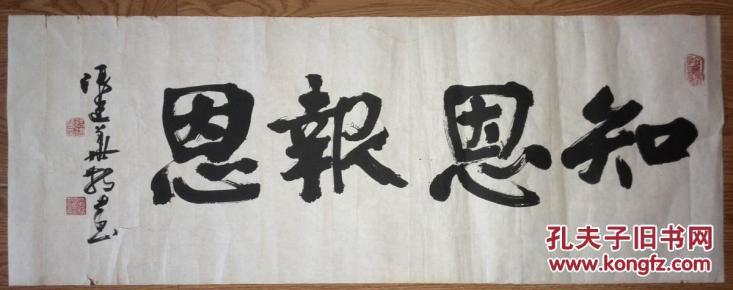 知恩報恩
張建華揚書
孔夫子旧书网
www.kongfz.com